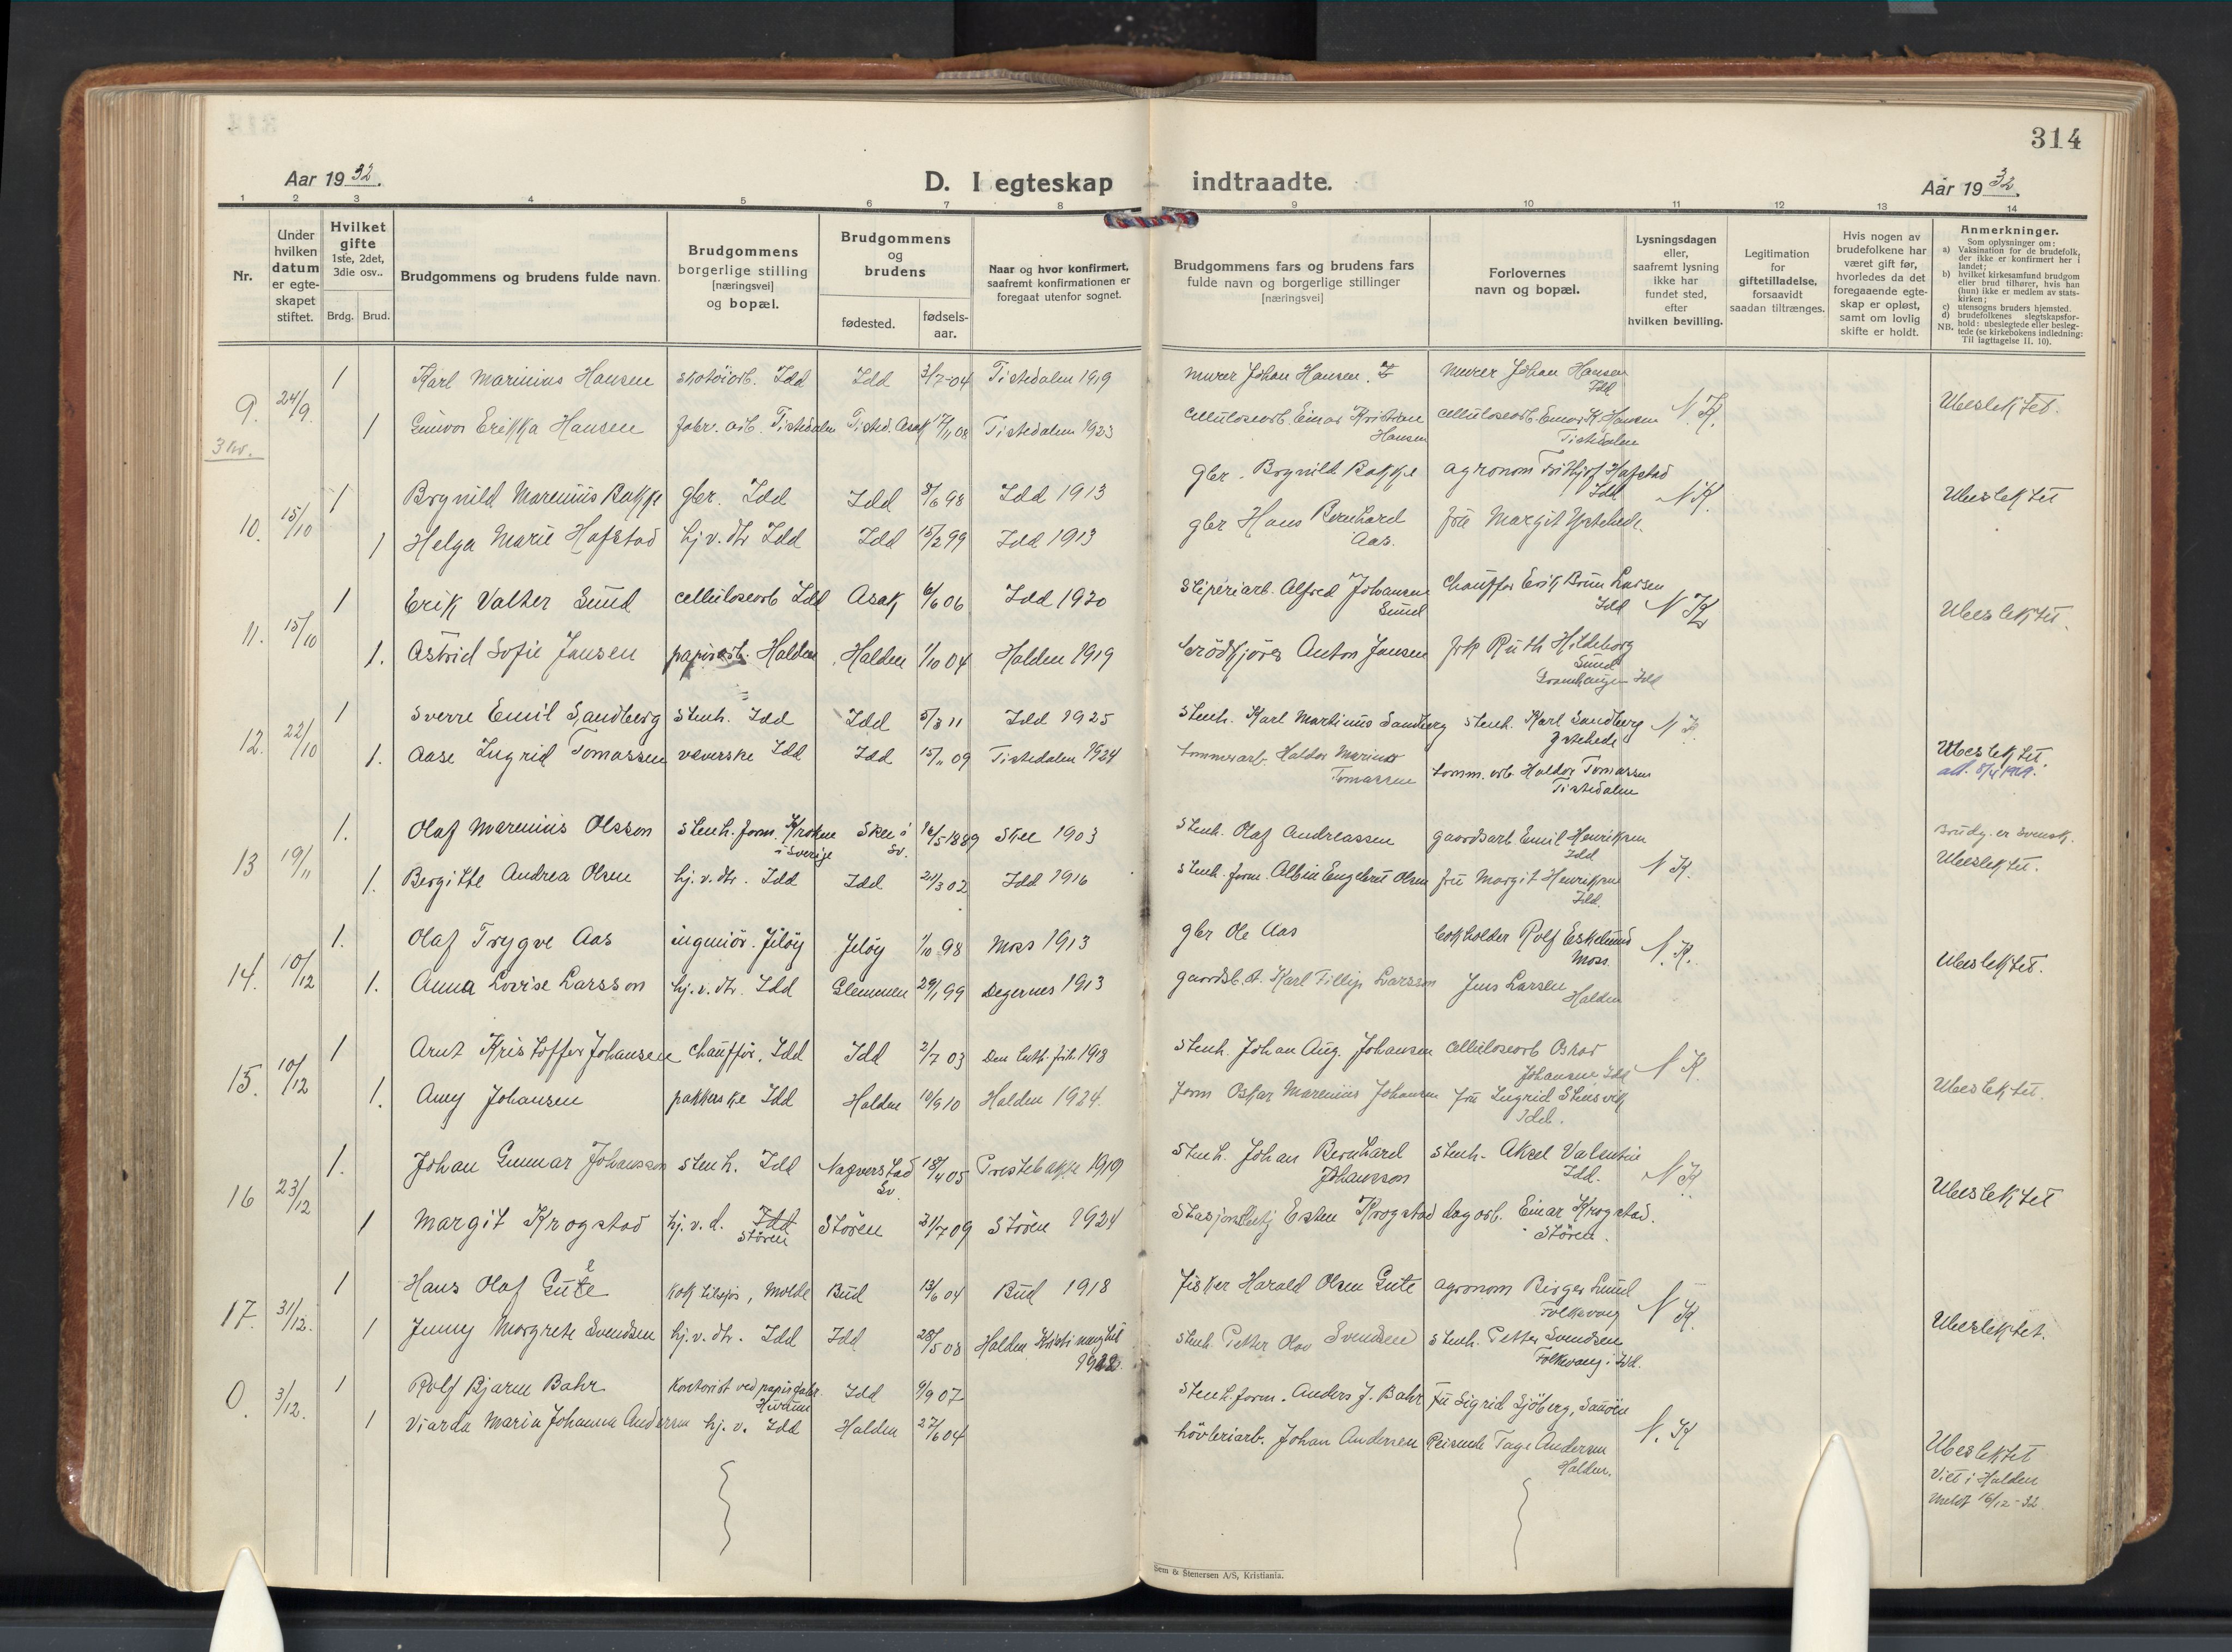 314
Aar 1932.
D. I egteskap indtraadte.
Aar 1932.
1 2 3 4 5 6 7 8 9 10 11 12 13 14
Nr.
Under hvilken datum er egte-skapet stiftet.
Hvilket gifte 1ste, 2det, 3die osv..
Brdg. Brud.
Brudgommens og brudens fulde navn.
Brudgommens borgerlige stilling [næringsvei] og bopæl.
Brudgommens og brudens
fødested.
fødsels-aar.
Naar og hvor konfirmert, saafremt konfirmationen er foregaat utenfor sognet.
Brudgommens fars og brudens fars fulde navn og borgerlige stillinger [næringsvei]
Forlovernes navn og bopæl.
Lysningsdagen eller, saafremt lysning ikke har fundet sted, efter hvilken bevilling.
Legitimation for giftetilladelse, forsaavidt saadan tiltrænges.
Hvis nogen av brudefolkene har været gift før, hvorledes da det foregaaende egte-skap er opløst, samt om lovlig skifte er holdt.
Anmerkninger.
Som oplysninger om:
a) Vaksination for de brudefolk, der ikke er konfirmert her i landet;
b) hvilket kirkesamfund brudgom eller brud tilhører, hvis han (hun) ikke er medlem av stats-kirken;
c) utensogns bruders hjemsted.
d) brudefolkenes slegtskapsfor-hold: ubeslegtede eller besleg-tede (se kirkebokens indledning:
NB. Til iagttagelse II. 10).
9. 24/9 1 Karl Marinius Hansen skotöiarb. Idd Idd 3/7-04 Tistedalen 1919 murer Johan Hansen. murer Johan Hansen Idd N.K. Ubeslektet.
1 Gunvor Erikka Hansen fabr. arb. Tistedalen Tisted. Asak 17/11 08 Tistedalen 1923 celluloseorb. Einar Kristian Hansen celluloseorb. Einar K. Hansen Tistedalen
10. 15/10 1 Brynild Marenius Bakke gbr. Idd Idd 8/6 98 Idd 1913 gbr. Brynild Bakke agronom Fritjof Hafstad Idd N.K. Ubeslektet
1 Helga Marie Hafstad hj.v.dtr Idd Idd 15/2 99 Idd 1913 gbr Hans Bernhard Aas. fru Margit Ystehede.
11. 15/10 1 Erik Valter Sund celluloseorb Idd Asak 6/6 06 Idd 1920 Sliperiarb. Alfred Johansen Sund Chauffør Erik Brun Larsen Idd N K Ubeslektet.
1. Astrid Sofie Jansen papirarb. Halden Halden 1/10 04 Halden 1919 brödkjörer Anton Jansen frk Ruth Hildeborg Sund Idd
12. 22/10 1 Sverre Emil Sandberg Stenh. Idd Idd 5/3 11 Idd 1925 Stenh. Karl Martinus Sandberg Stenh. Karl Sandberg Ystehede N K Ubeslektet.
1. Aase Ingrid Tomassen veverske Idd Idd 15/11 09 Tistedalen 1924 tommerarb. Haldor Marino Tomassen tomm. orb. Haldor Tomassen Tistedalen
13 19/11 1. Olaf Marenius Olsson Stenh. form. Kroken i Sverige Skee i Sv. 16/5 1889 Skee 1903 Stenh. Olaf Andreassen gaardsarb Emil Henriksen Idd N K. Brudg. er svensk. Ubeslektet.
1. Bergitte Andrea Olsen hj.v.dtr. Idd Idd 21/3 02 Idd 1916 Stenh. form. Albin Engebret Olsen fru Margit Henriksen Idd.
14. 10/12 1. Olaf Trygve Aas ingeniör. Jelöy Jelöy 1/10 98 Moss 1913 gbr Ole Aas bokholder Rolf Eskelund Moss N.K. Ubeslektet.
1. Anna Lovise Larsson hj.v.dtr. Idd Glemmen 29/1 99 Degernes 1913 gaardsb. Karl Fillip Larsson Jens Larsen Halden
15. 10/12 1 Arnt Kristoffer Johansen chauffør. Idd Idd 2/7 03 Den luth. frik. 1918 Stenh. Johan Aug. Johansen celluloseorb Oskar Johansen Idd N K. Ubeslektet.
1. Amy Johansen pakkerske Idd Halden 10/9 10 Halden 1924. form Oskar Marenius Johansen fru Ingrid Stensvik Idd.
16 23/12 1. Johan Gunnar Johansson Stenh. Idd Naverstad Sv. 18/4 05 Prestebakke 1919 Stenh. Johan Bernhard Johansson Stenh. Aksel Valentin Idd. N K Ubeslektet
1 Margit Krogstad hj.v.d. Idd Stören Stören 3/7 09 Stören 1924 Stasjonsbetj Esten Krogstad dagarb. Einar Krogstad. Stören.
17. 31/12. 1 Hans Olaf Gule kok tilsjøs, Molde Bud 13/6 04 Bud 1918 fisker Harald Olsen Gule agronom Birger Lund Folkvang N K. Ubeslektet.
1 Jenny Margrete Svendsen hj.v.dtr. Idd Idd 28/5 08 Halden 1922. Stenh. Petter Olav Svendsen Stenh. Petter Svendsen Folkvang i Idd.
0. 3/12. 1 Rolf Bjarne Bahr kontorist ved papirfabr. Hurum Idd 9/9 07 Stenh. form. Anders J. Bahr Fru Sigrid Sjöberg, Sauöen N. K Ubeslektet
1 Viarda Maria Johanna Andersen hj.v. Idd Halden 27/6 04 hövleriarb. Johan Andersen Reisende Tage Andersen Halden.
Viet i Halden
Meldt 16/12-32.
Sem & Stenersen A/S, Kristiania.